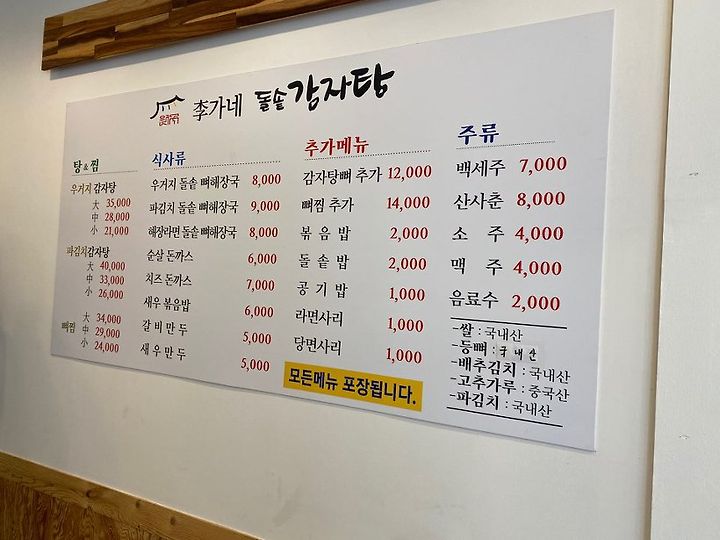 李가네 돌솥 감자탕
탕&찜
우거지 감자탕
大 35,000
中 28,000
小 21,000
파김치감자탕
大 40,000
中 33,000
小 26,000
뼈찜
大 34,000
中 29,000
小 24,000
식사류
우거지 돌솥 뼈해장국 8,000
파김치 돌솥 뼈해장국 9,000
해장라면 돌솥 뼈해장국 8,000
순살 돈까스 6,000
치즈 돈까스 7,000
새우 볶음밥 6,000
갈비만두 5,000
새우만두 5,000
추가메뉴
감자탕뼈 추가 12,000
뼈찜 추가 14,000
볶음밥 2,000
돌솥밥 2,000
공기밥 1,000
라면사리 1,000
당면사리 1,000
모든메뉴 포장됩니다.
주류
백세주 7,000
산사춘 8,000
소주 4,000
맥주 4,000
음료수 2,000
-쌀 : 국내산
-등뼈 : 국내산
-배추김치 : 국내산
-고추가루 : 중국산
-파김치 : 국내산